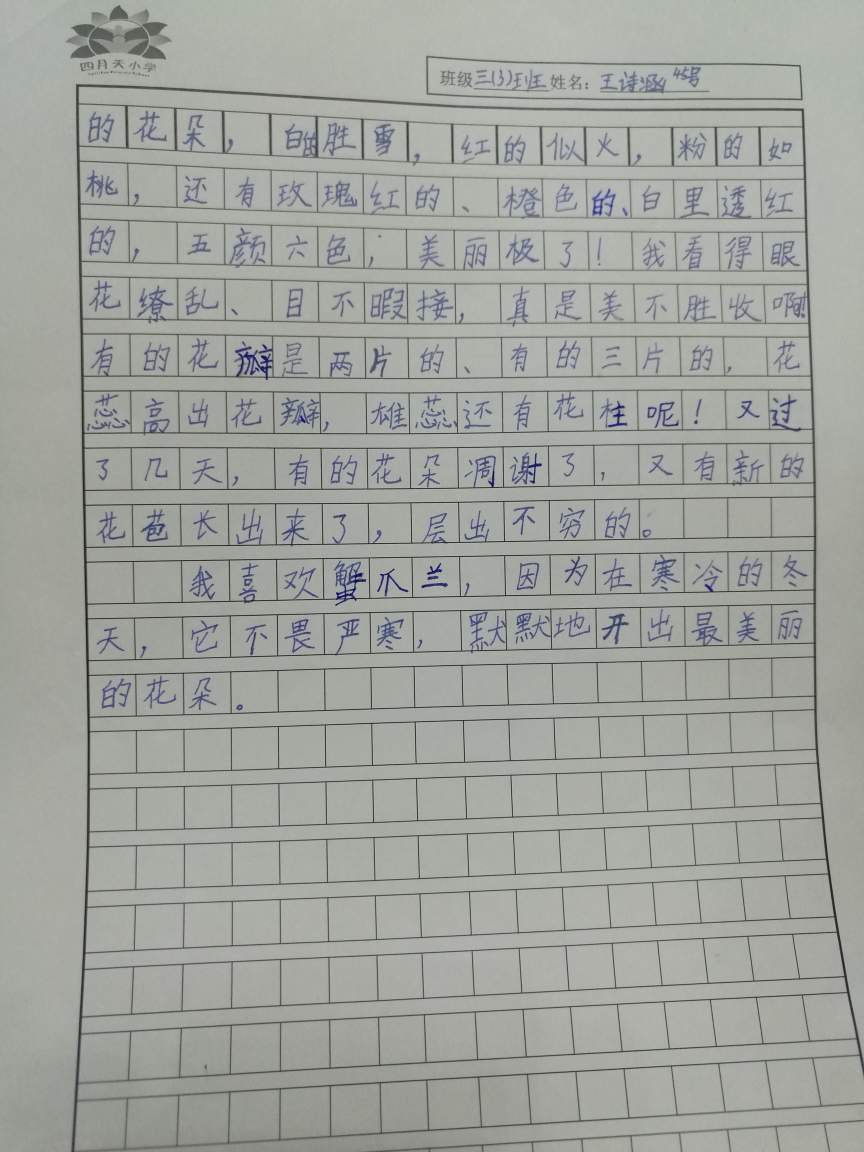 四月天小学
班级三(3)班姓名:王诗涵45号
的花朵，白的胜雪，红的似火，粉的如
桃，还有玫瑰红的、橙色的、白里透红
的，五颜六色，美丽极了！我看得眼
花缭乱、目不暇接，真是美不胜收啊！
有的花瓣是两片的、有的三片的，花
蕊高出花瓣，雄蕊还有花柱呢！又过
了几天，有的花朵凋谢了，又有新的
花苞长出来了，层出不穷的。
我喜欢蟹爪兰，因为在寒冷的冬
天，它不畏严寒，默默地开出最美丽
的花朵。